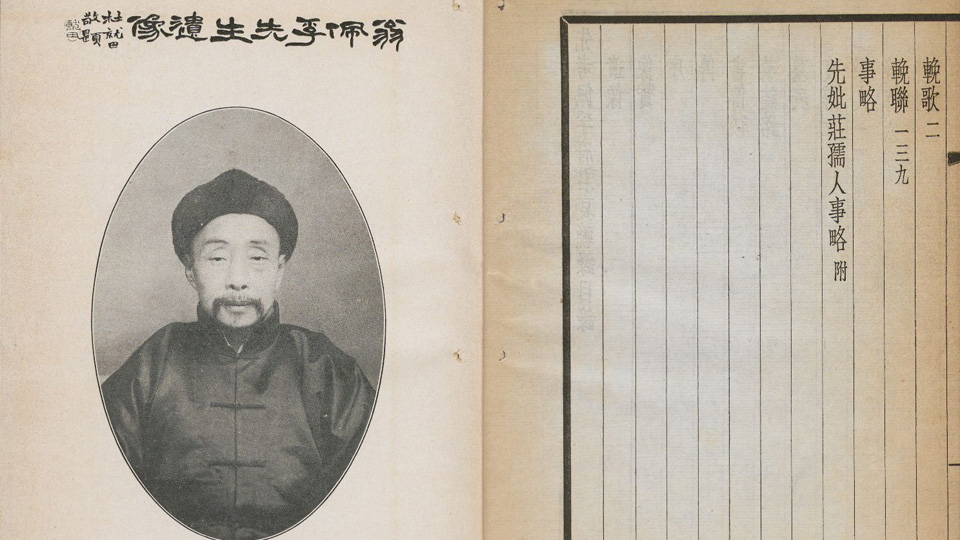 輓歌 二
輓聯 一三九
事略
先妣莊孺人事略 附
翁佩孚先生遺像
杜就田
敬題